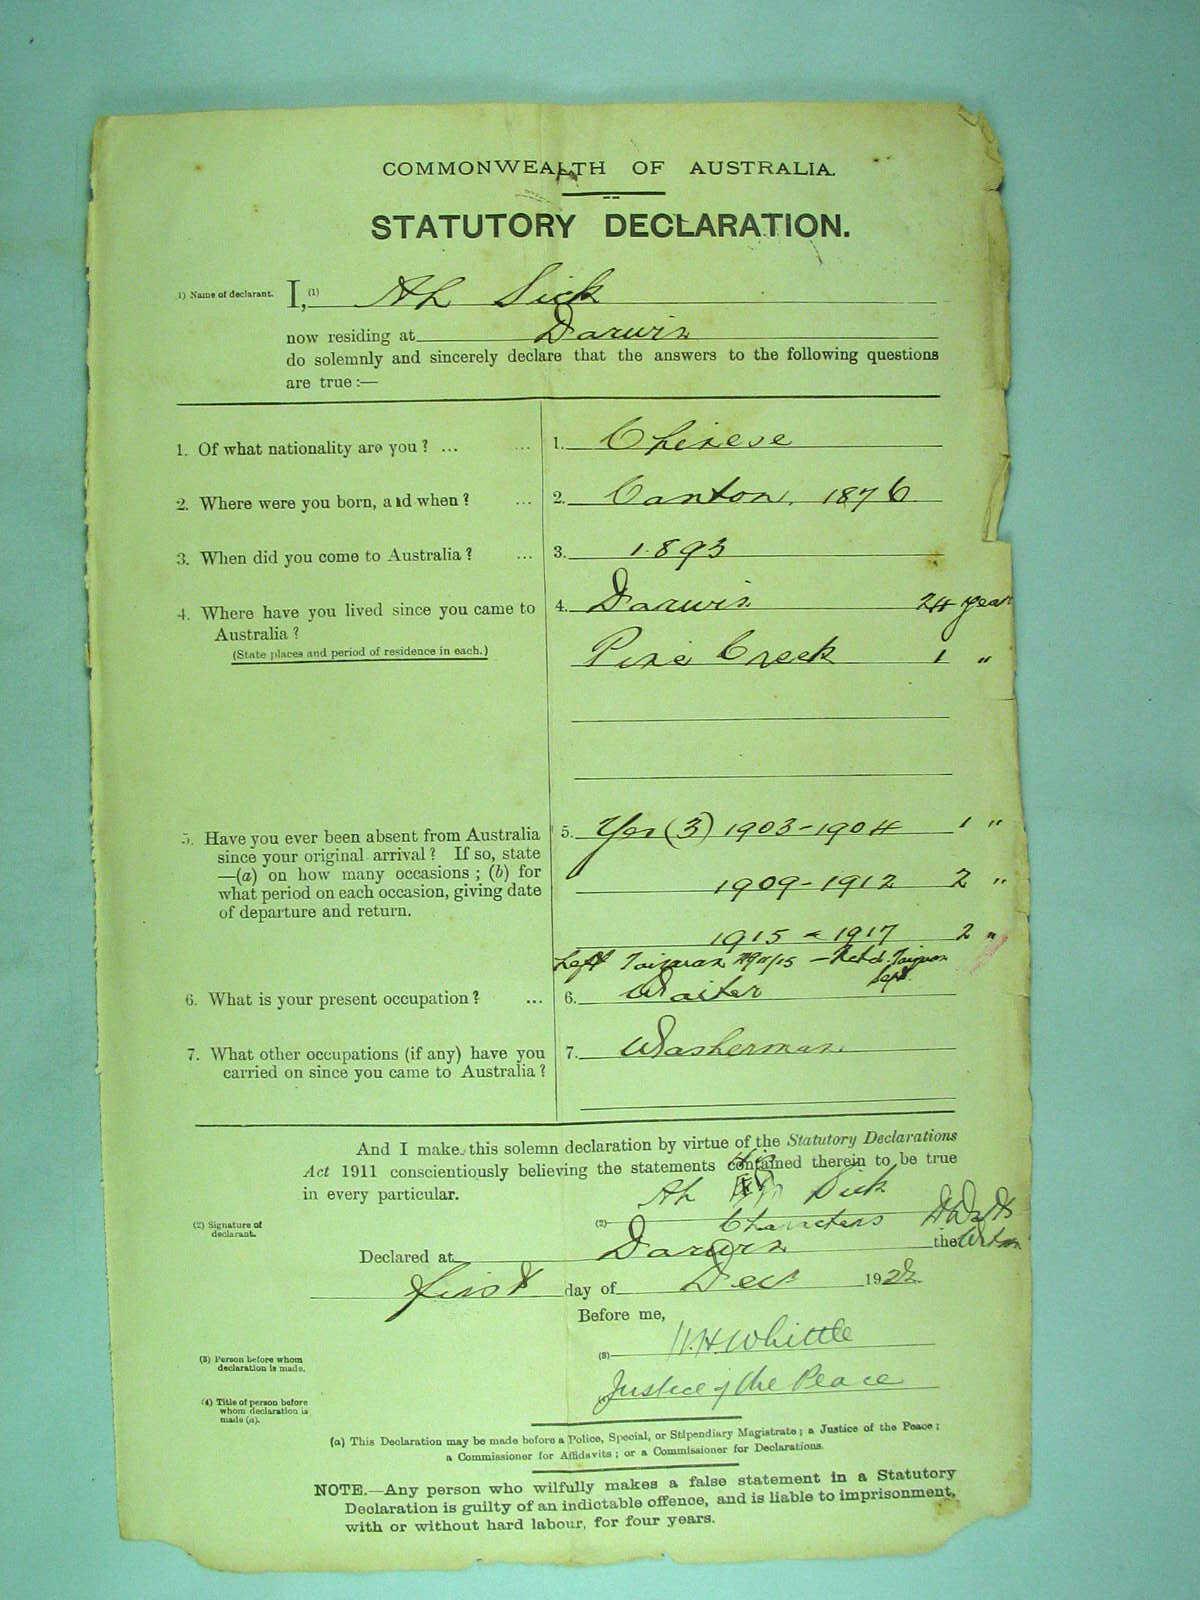 COMMONWEALTH OF AUSTRALIA.
STATUTORY DECLARATION.
1) Name of declarant. I, (1) Ah Sick
now residing at Darwin
do solemnly and sincerely declare that the answers to the following questions
are true:—
1. Of what nationality are you? ... ... 1. Chinese
2. Where were you born, and when? ... 2. Canton, 1876
3. When did you come to Australia? ... 3. 1893
4. Where have you lived since you came to 4. Darwin 24 year
Australia?
(State places and period of residence in each.) Pine Creek 1 "
5. Have you ever been absent from Australia 5. Yes (3) 1903-1904 1 "
since your original arrival? If so, state
—(a) on how many occasions; (b) for 1909-1912 2 "
what period on each occasion, giving date
of departure and return.
1915 - 1917 2 "
Left Taiyuan /15 - Retd. Taiyuan
Sept
6. What is your present occupation? ... 6. Waiter
7. What other occupations (if any) have you 7. Washerman
carried on since you came to Australia?
And I make this solemn declaration by virtue of the Statutory Declarations
Act 1911 conscientiously believing the statements contained therein to be true
in every particular.
Ah Sick
(2) Signature of declarant. (2) Characters
Declared at Darwin the
first day of Dec 1922
Before me,
(3) W.H. Whittle
(3) Person before whom
declaration is made.
Justice of the Peace
(4) Title of person before
whom declaration is
made (a).
(a) This Declaration may be made before a Police, Special, or Stipendiary Magistrate; a Justice of the Peace;
a Commissioner for Affidavits; or a Commissioner for Declarations.
NOTE.—Any person who wilfully makes a false statement in a Statutory
Declaration is guilty of an indictable offence, and is liable to imprisonment,
with or without hard labour, for four years.